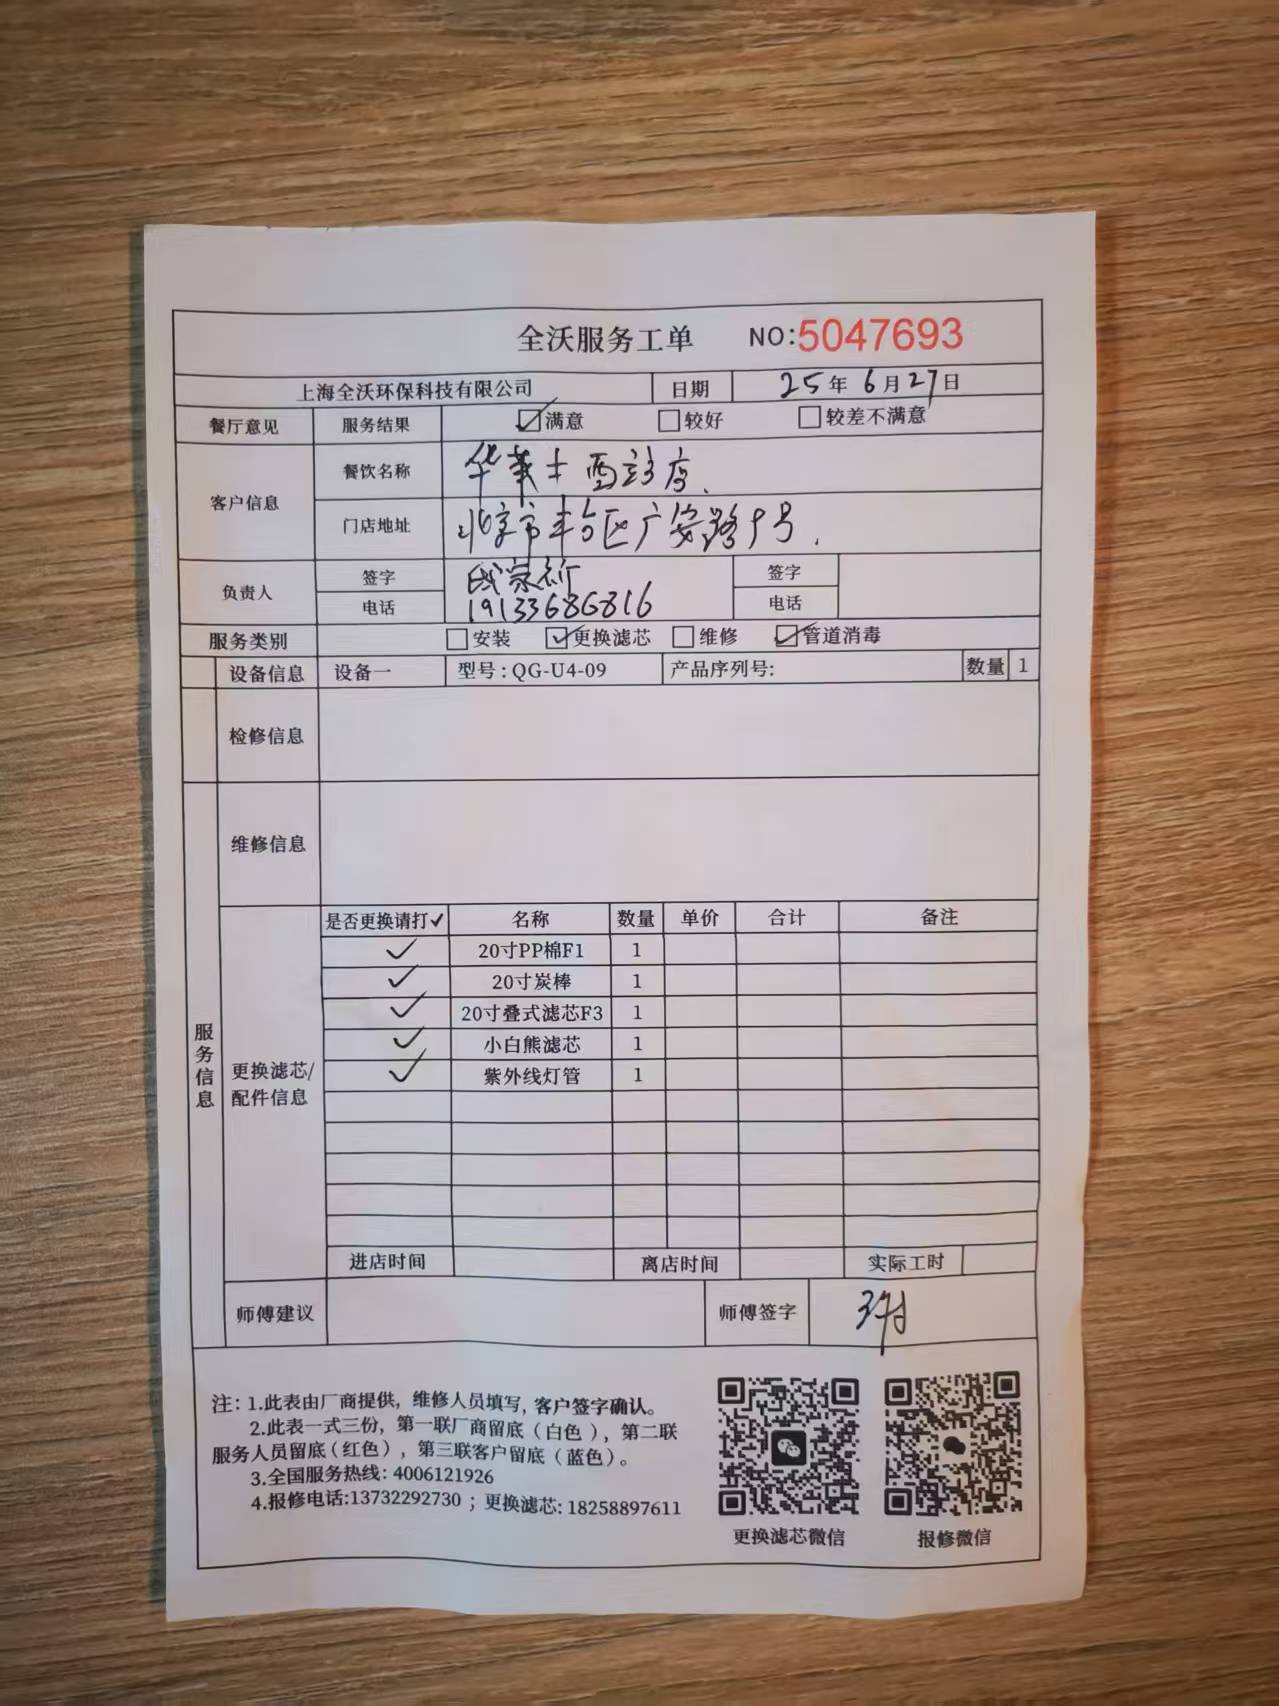 全沃服务工单 NO:5047693
上海全沃环保科技有限公司 日期 25年6月27日
餐厅意见 服务结果 ☑满意 ☐较好 ☐较差不满意
客户信息 餐饮名称 华莱士西站店.
门店地址 北京市丰台区广安路9号.
负责人 签字 签字
电话 19133686816 电话
服务类别 ☐安装 ☑更换滤芯 ☐维修 ☑管道消毒
设备信息 设备一 型号:QG-U4-09 产品序列号: 数量 1
检修信息
维修信息
服务信息
更换滤芯/配件信息
是否更换请打✓ 名称 数量 单价 合计 备注
✓ 20寸PP棉F1 1
✓ 20寸炭棒 1
✓ 20寸叠式滤芯F3 1
✓ 小白熊滤芯 1
✓ 紫外线灯管 1
进店时间 离店时间 实际工时
师傅建议 师傅签字
注:1.此表由厂商提供，维修人员填写,客户签字确认。
2.此表一式三份，第一联厂商留底（白色），第二联
服务人员留底（红色），第三联客户留底（蓝色）。
3.全国服务热线:4006121926
4.报修电话:13732292730；更换滤芯:18258897611
更换滤芯微信 报修微信